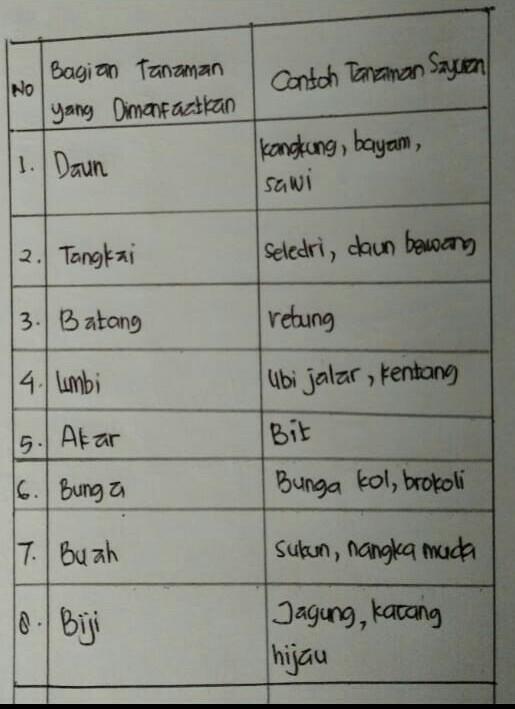 No
Bagian Tanaman
yang Dimanfaatkan
Contoh Tanaman Sayuran
1. Daun
kangkung, bayam,
sawi
2. Tangkai
Seledri, daun bawang
3. Batang
rebung
4. Umbi
Ubi jalar, kentang
5. Akar
Bit
6. Bunga
Bunga kol, brokoli
7. Buah
Sukun, nangka muda
8. Biji
Jagung, kacang
hijau